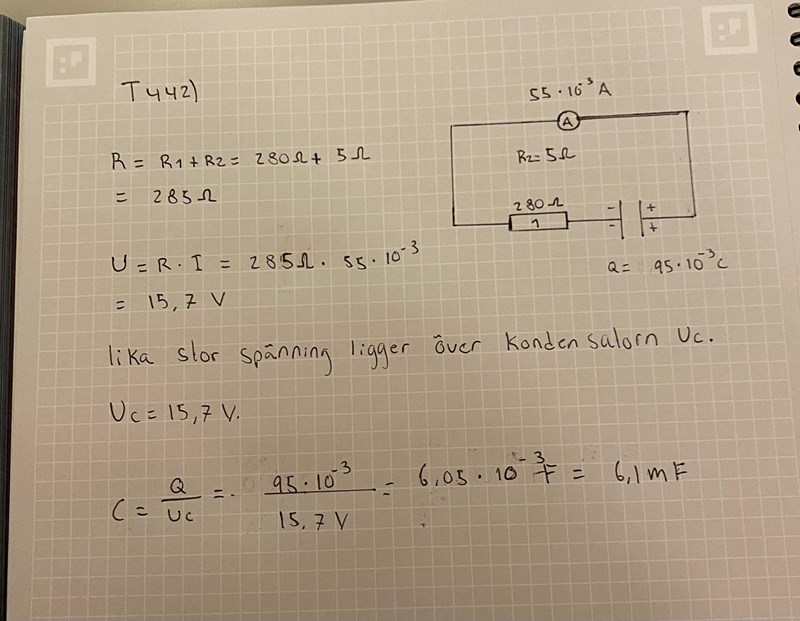 T442)
55 · 10⁻³ A
A
R = R1 + R2 = 280Ω + 5Ω
R2 = 5Ω
= 285Ω
280Ω
1
- +
- +
U = R · I = 285Ω · 55 · 10⁻³
Q = 95 · 10⁻³ C
= 15,7 V
lika stor spänning ligger över kondensatorn Uc.
Uc = 15,7 V.
C = Q/Uc = 95 · 10⁻³ / 15,7 V = 6,05 · 10⁻³ F = 6,1 mF